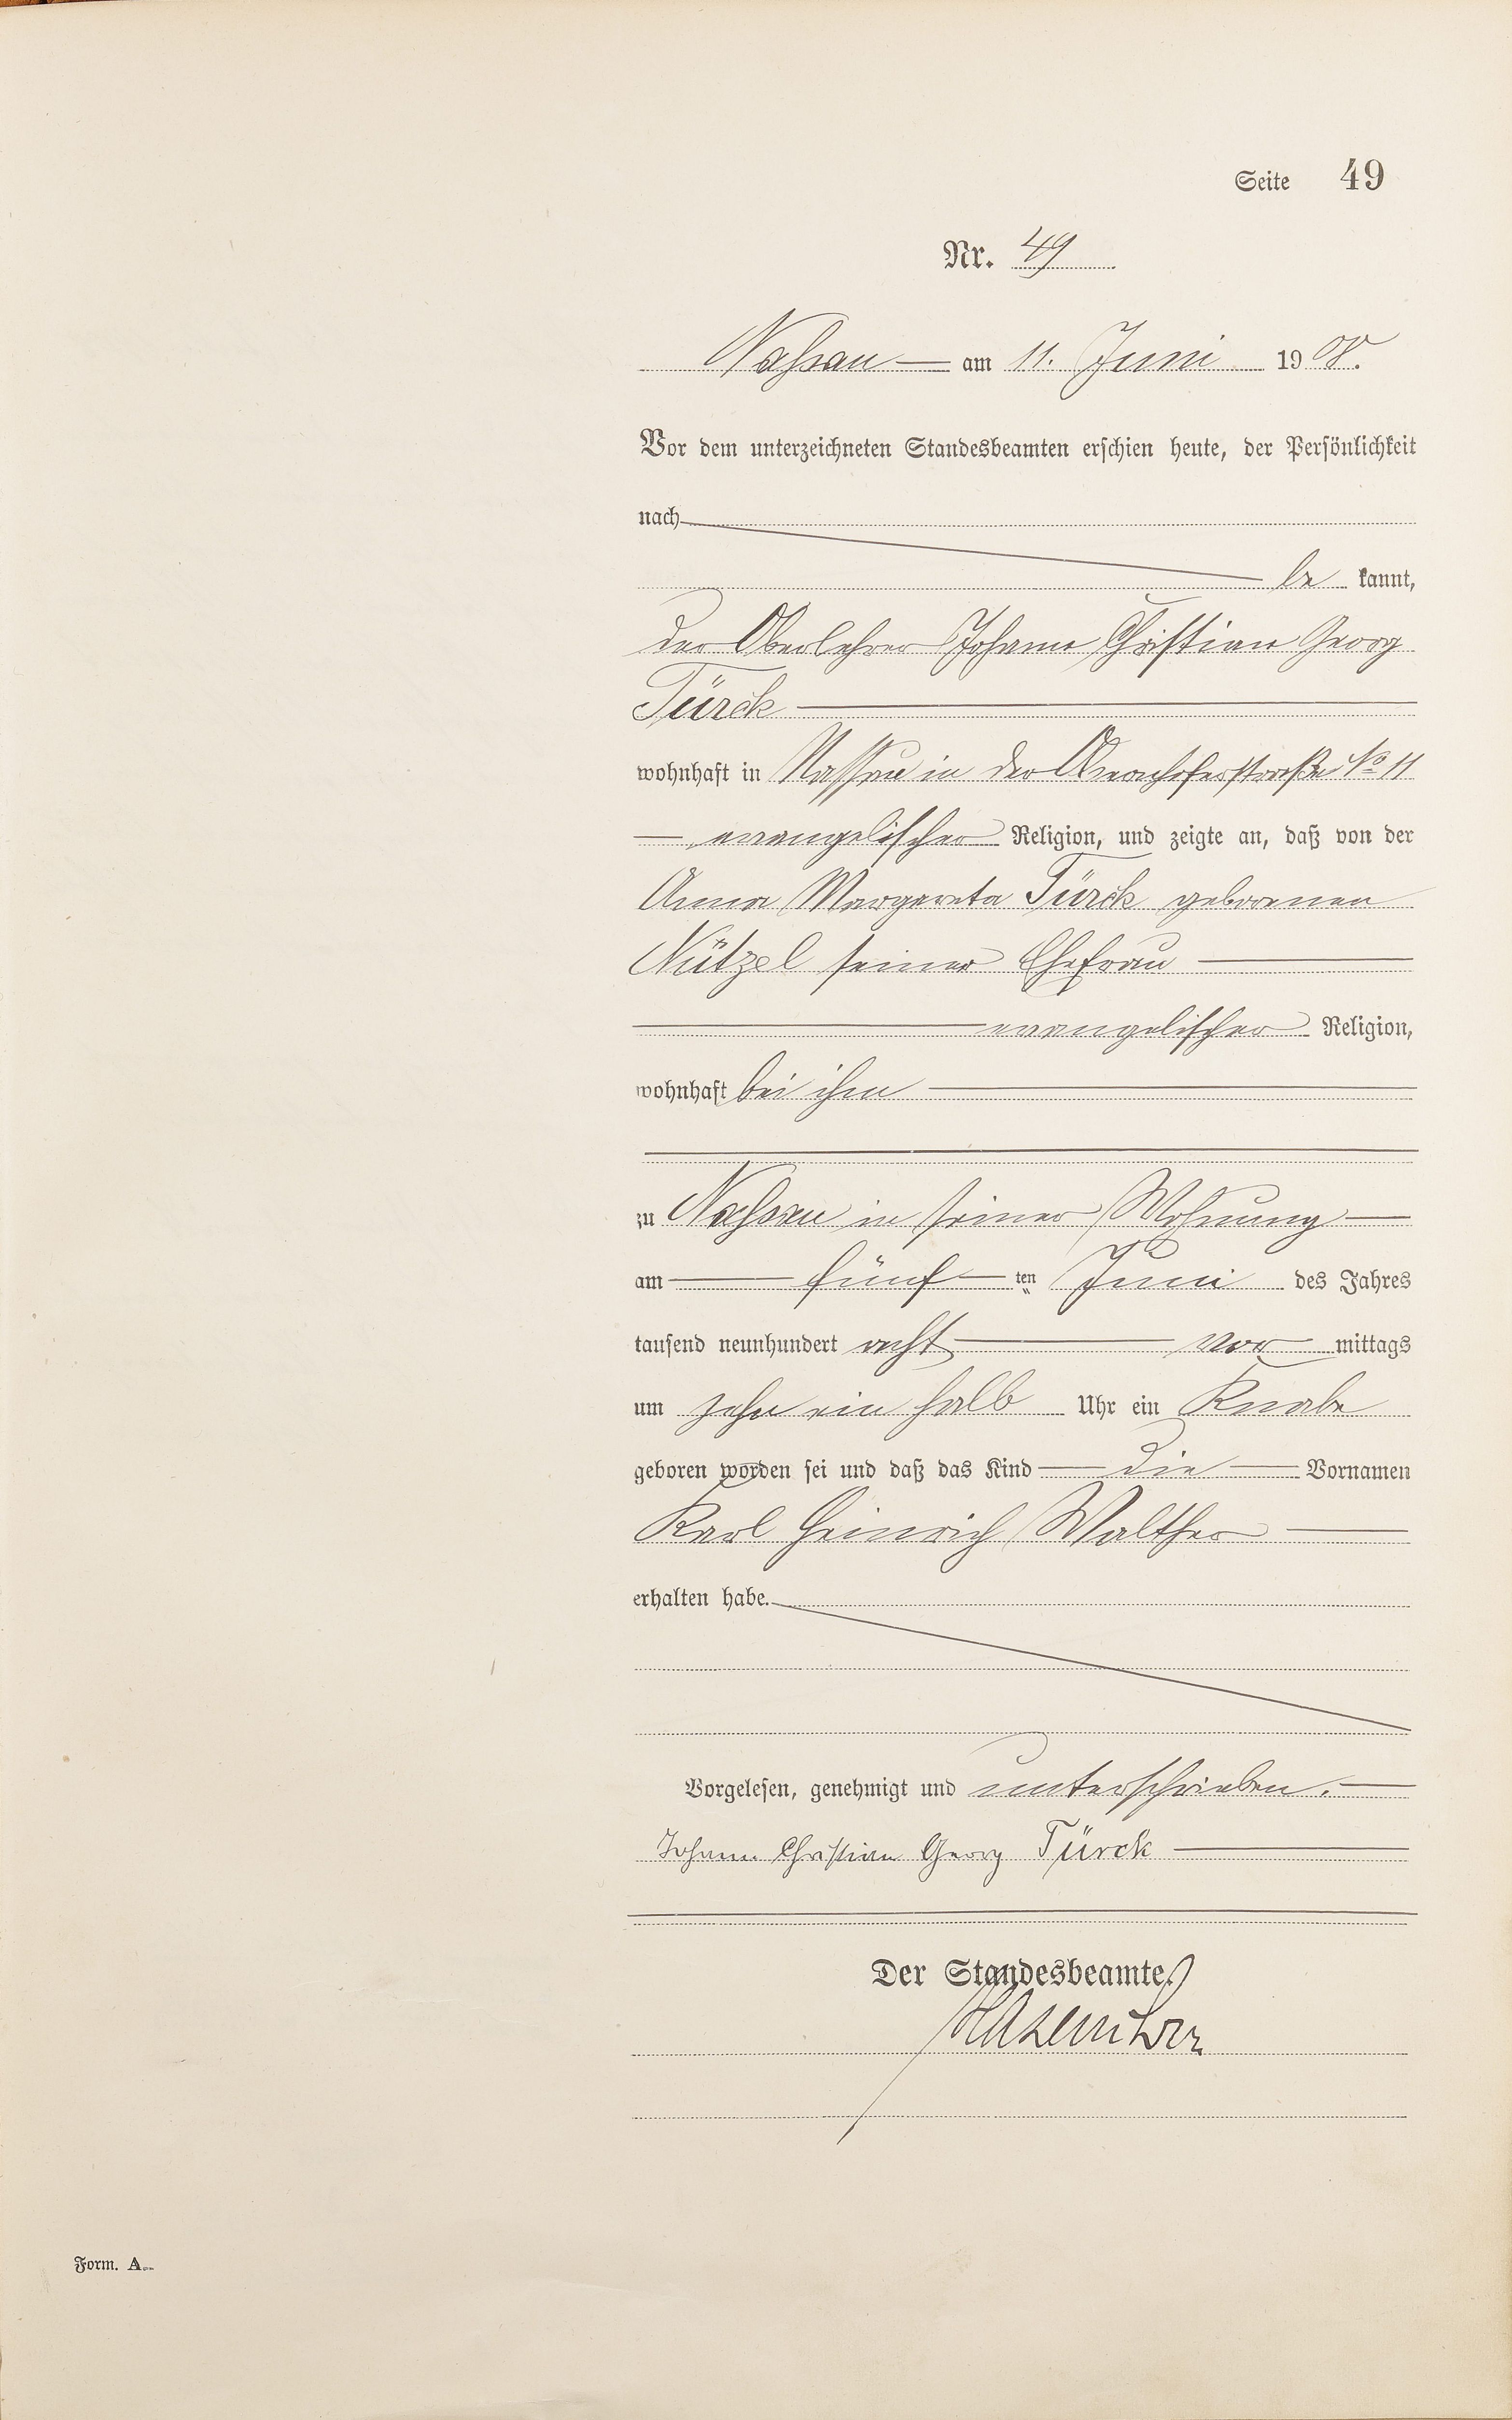 Seite 49
Nr. 49
Nassau am 11. Juni 1908.
Vor dem unterzeichneten Standesbeamten erschien heute, der Persönlichkeit
nach
be kannt,
der Oberlehrer Johann Christian Georg
Türck
wohnhaft in Nassau in der Obernhoferstraße No 11
evangelischer Religion, und zeigte an, daß von der
Anna Margareta Türck geborenen
Nützel seiner Ehefrau
evangelischer Religion,
wohnhaft bei ihm
zu Nassau in seiner Wohnung
am fünf ten Juni des Jahres
tausend neunhundert acht vor mittags
um zehn ein halb Uhr ein Knabe
geboren worden sei und daß das Kind die Vornamen
Karl Heinrich Walther
erhalten habe.
Vorgelesen, genehmigt und unterschrieben.
Johann Christian Georg Türck
Der Standesbeamte.
Form. A.